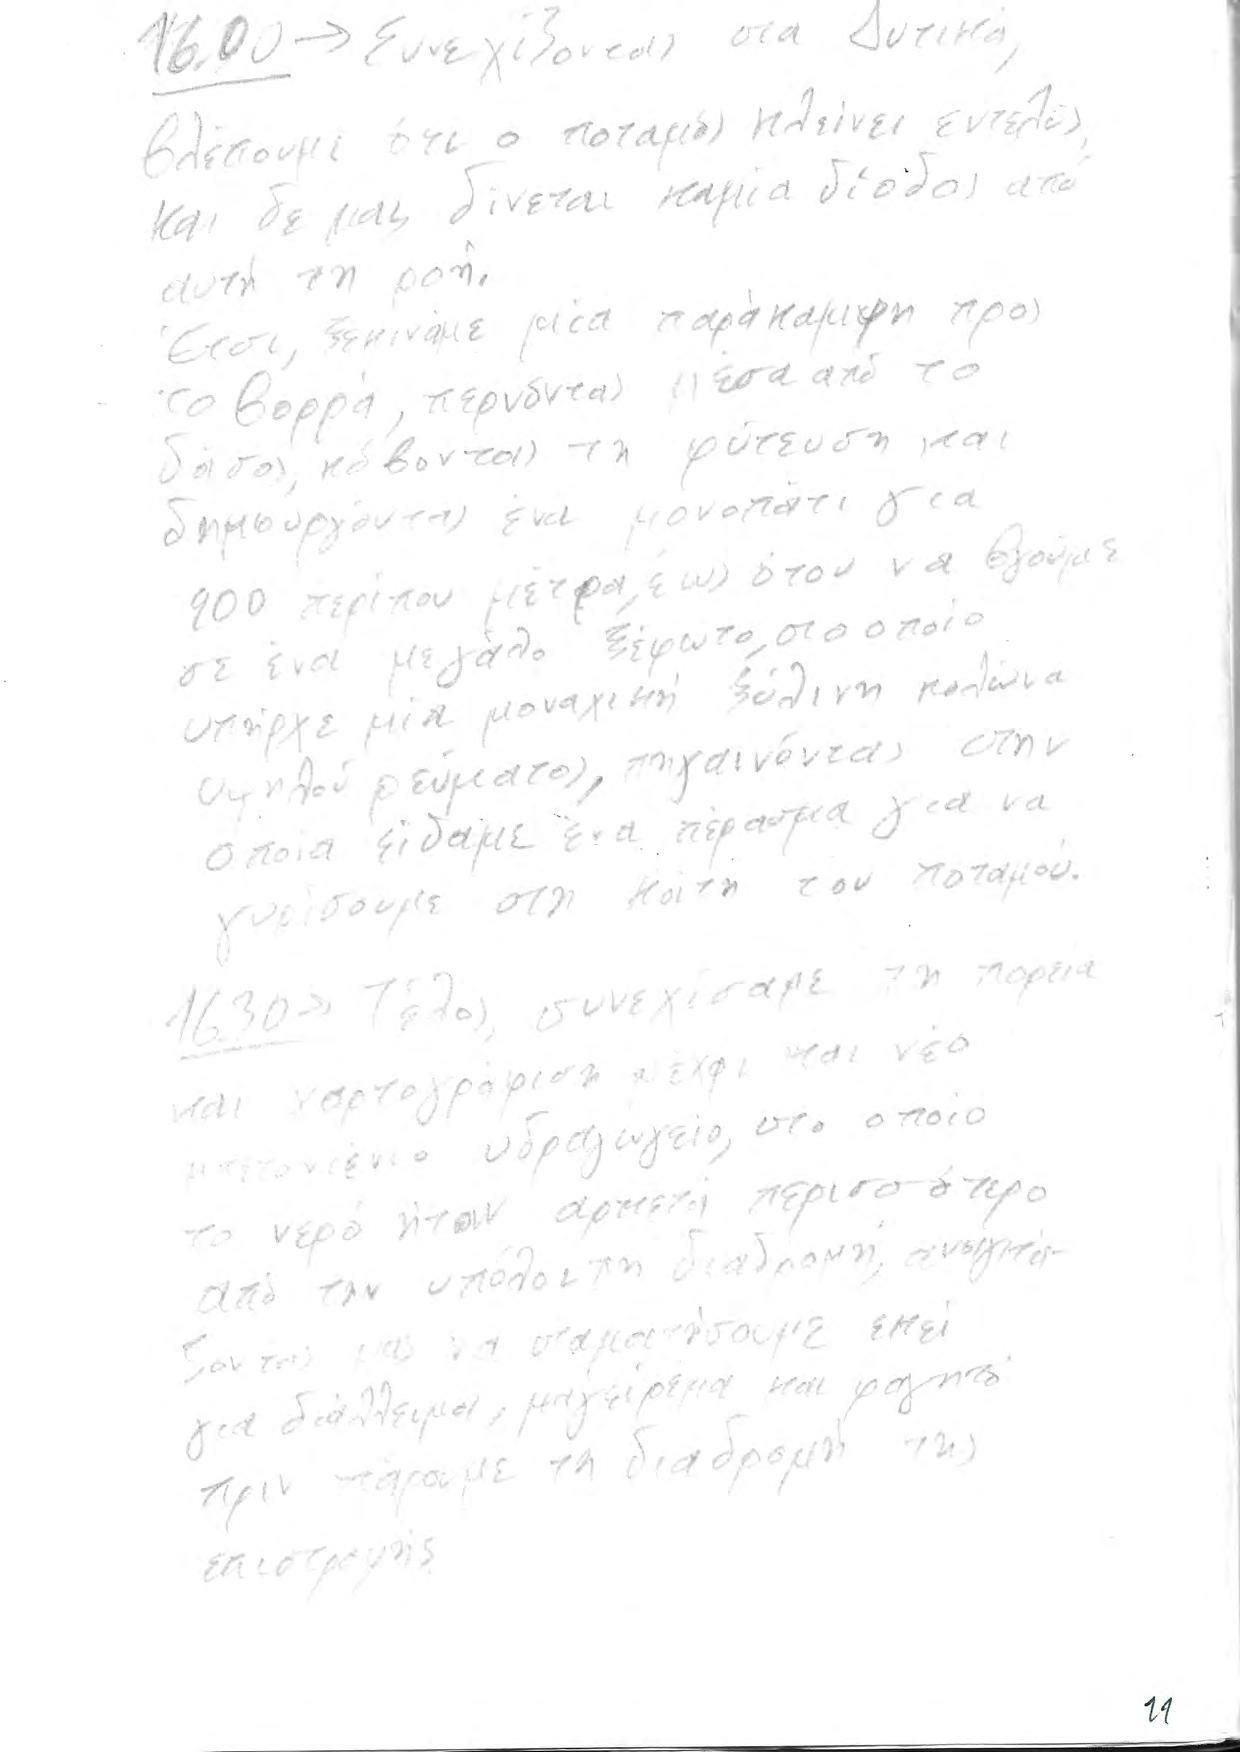 16.00 → Συνεχίζοντας στα Δυτικά,
βλέπουμε ότι ο ποταμός κλείνει εντελώς,
και δε μας δίνεται καμία δίοδος από
αυτή τη ροή.
Έτσι, ξεκινάμε μία παράκαμψη προς
το βορρά, περνόντας μέσα από το
δάσος, κόβοντας τη φύτευση και
δημιουργόντας ένα μονοπάτι για
900 περίπου μέτρα, έως ότου να βγούμε
σε ένα μεγάλο ξέφωτο, στο οποίο
υπήρχε μία μοναχική ξύλινη κολώνα
υψηλού ρεύματος, πηγαινόντας στην
οποία είδαμε ένα πέρασμα για να
γυρίσουμε στη κοίτη του ποταμού.
1630 → Τέλος, συνεχίσαμε τη πορεία
και χαρτογράφιση μέχρι και νέο
μπετονιένιο υδραγωγείο, στο οποίο
το νερό ήταν αρκετά περισσότερο
από την υπόλοιπη διαδρομή,
ζοντας μας να σταματήσουμε εκεί
για διάλλειμα, μαγείρεμα και φαγητό
πριν πάρουμε τη διαδρομή της
επιστροφής
11